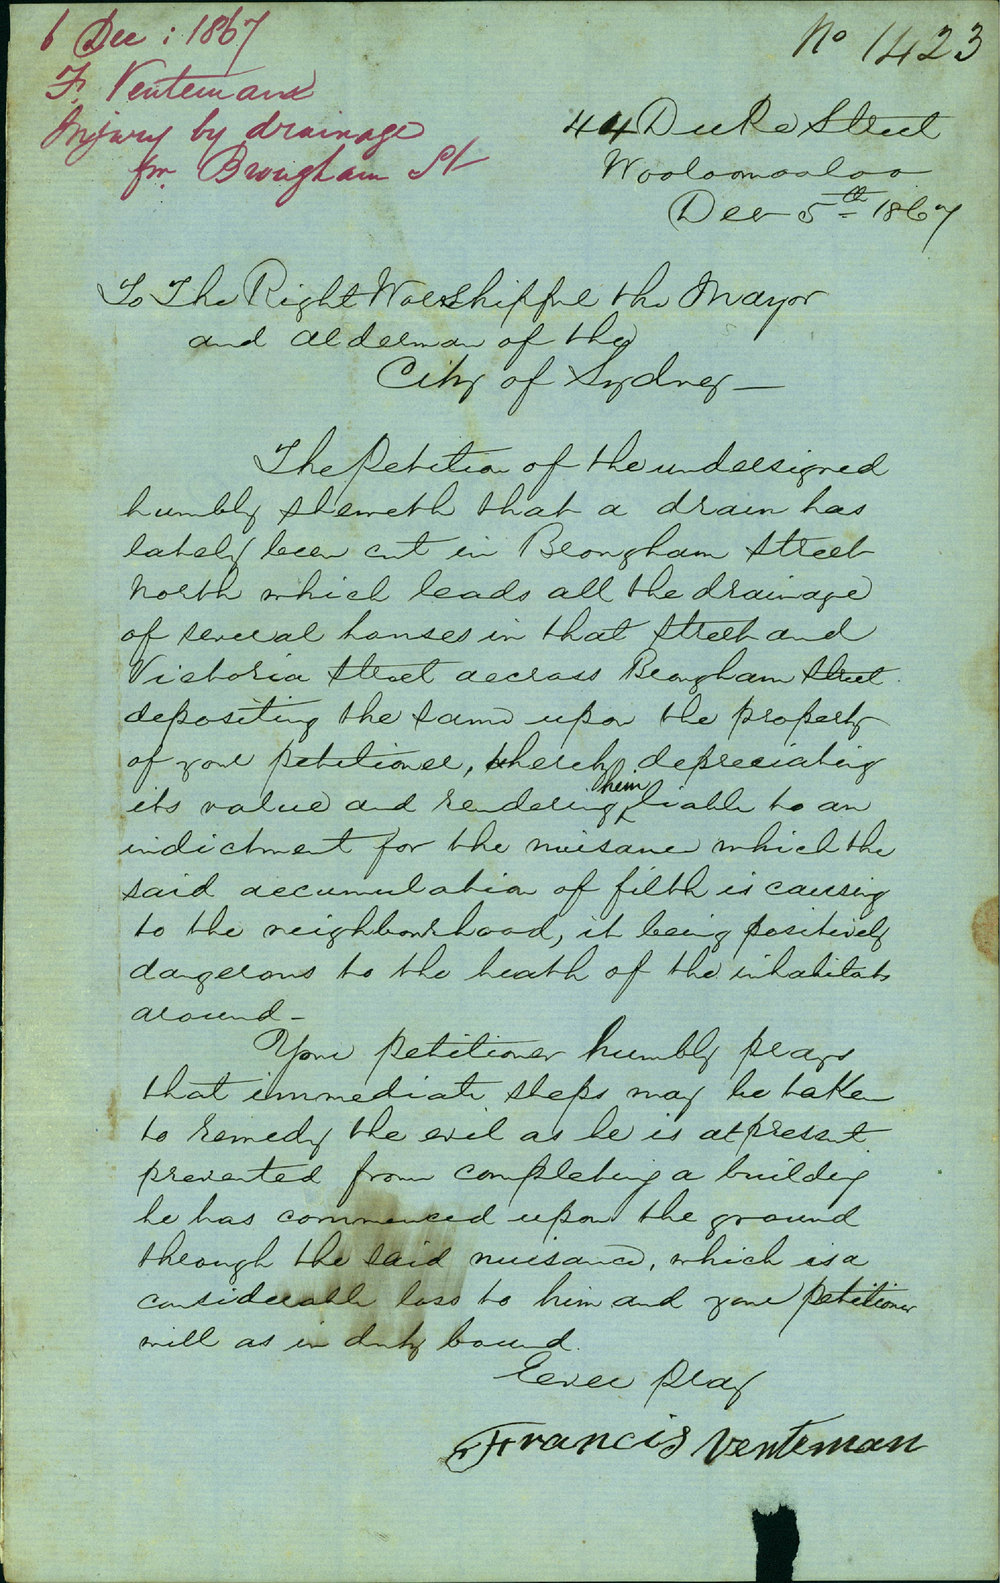 6 Dec : 1867
F. Ventemann
Injury by drainage
fm. Brougham St
No 1423
44 Duke Street
Wooloomooloo
Dec 5th 1867
To The Right Worshipful the Mayor
and Alderman of the
City of Sydney —
The Petition of the undersigned
humbly sheweth that a drain has
lately been cut in Brougham Street
North which leads all the drainage
of several houses in that street and
Victoria Street accross Brougham Street
depositing the same upon the property
of your petitioner, thereby depreciating
its value and rendering him liable to an
indictment for the nuisance which the
said accumulation of filth is causing
to the neighbourhood, it being positively
dangerous to the heath of the inhabitats
around —
Your petitioner humbly prays
that immediate steps may be taken
to remedy the evil as he is at present
prevented from completing a buildig
he has commenced upon the ground
through the said nuisance, which is a
considerable loss to him and your petitioner
will as in duty bound.
Ever pray
Francis Venteman